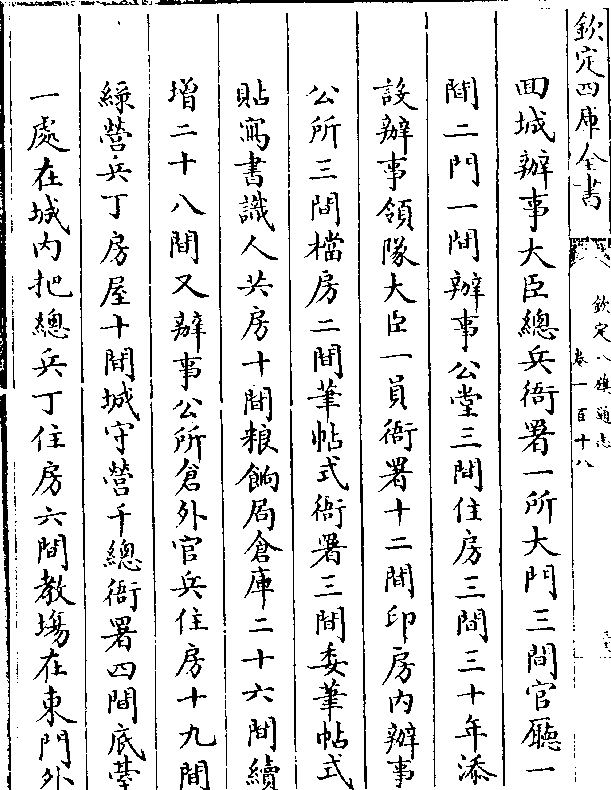 欽定四庫全書
欽定八旗通志
卷一百十八
回城辦事大臣總兵衙署一所大門三間官廳一
間二門一間辦事公堂三間住房三間三十年添
設辦事領隊大臣一員衙署十二間印房内辦事
公所三間檔房二間筆帖式衙署三間委筆帖式
貼寫書識人共房十間粮餉局倉庫二十六間續
增二十八間又辦事公所倉外官兵住房十九間
綠營兵丁房屋十間城守營千總衙署四間底臺
一處在城内把總兵丁住房六間教塲在東門外